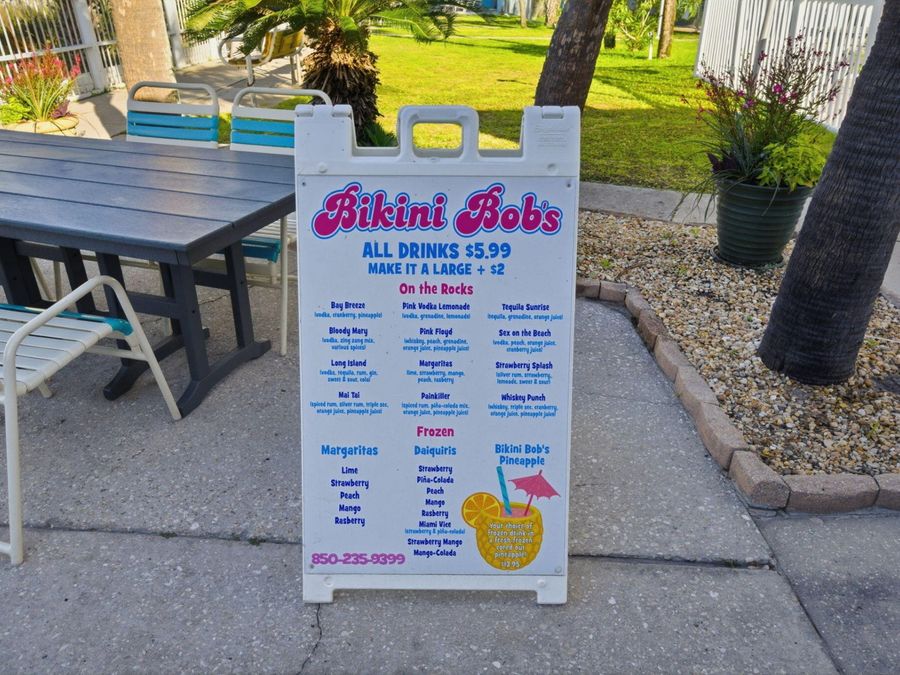 Bikini Bob's
ALL DRINKS $5.99
MAKE IT A LARGE + $2
On the Rocks
Bay Breeze
(vodka, cranberry, pineapple)
Pink Vodka Lemonade
(vodka, grenadine, lemonade)
Tequila Sunrise
(tequila, grenadine, orange juice)
Bloody Mary
(vodka, zing zang mix,
various spices)
Pink Floyd
(whiskey, peach, grenadine,
orange juice, pineapple juice)
Sex on the Beach
(vodka, peach, orange juice,
cranberry juice)
Long Island
(vodka, tequila, rum, gin,
sweet & sour, cola)
Margaritas
lime, strawberry, mango,
peach, rasberry
Strawberry Splash
(silver rum, strawberry,
lemonade, sweet & sour)
Mai Tai
(spiced rum, silver rum, triple sec,
orange juice, pineapple juice)
Painkiller
(spiced rum, piña-colada mix,
orange juice, pineapple juice)
Whiskey Punch
(whiskey, triple sec, cranberry,
orange juice, pineapple juice)
Frozen
Margaritas
Lime
Strawberry
Peach
Mango
Rasberry
Daiquiris
Strawberry
Piña-Colada
Peach
Mango
Rasberry
Miami Vice
(strawberry & piña-colada)
Strawberry Mango
Mango-Colada
Bikini Bob's
Pineapple
Your choice of
frozen drink in
a fresh frozen
cored out
pineapple!
$13.95
850-235-9399